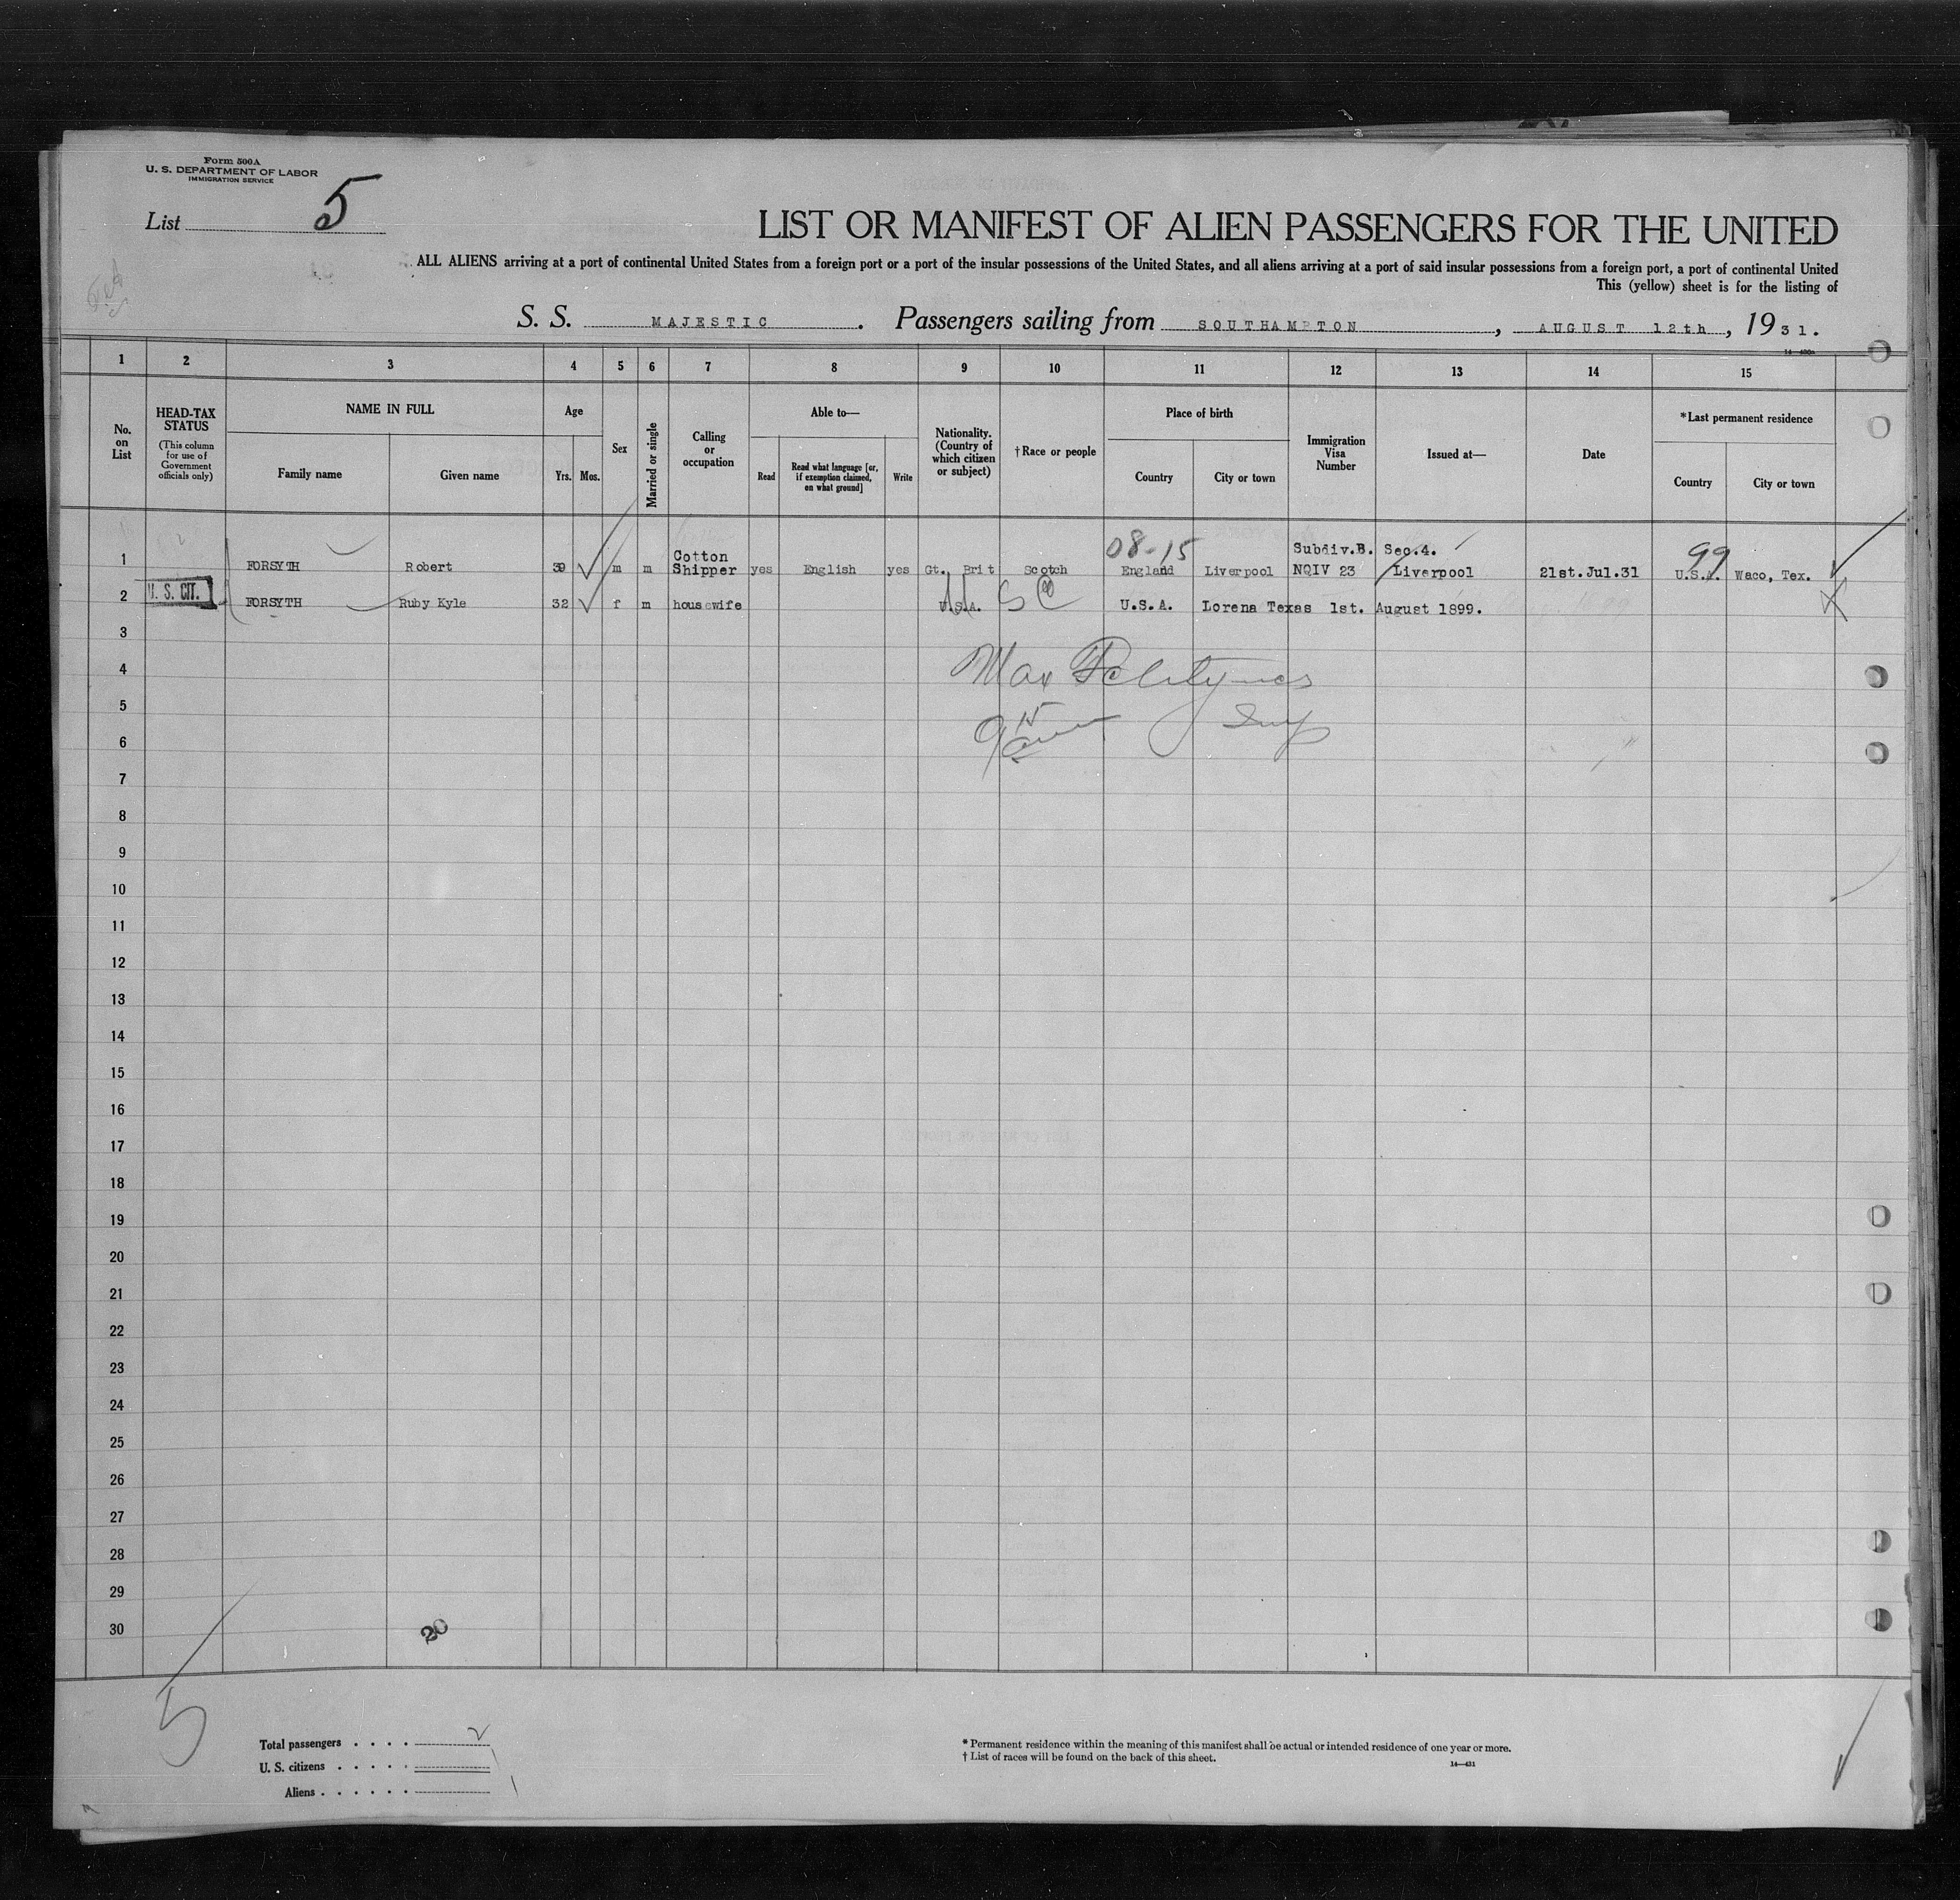 Form 500A
U. S. DEPARTMENT OF LABOR
IMMIGRATION SERVICE
List 5
LIST OR MANIFEST OF ALIEN PASSENGERS FOR THE UNITED
ALL ALIENS arriving at a port of continental United States from a foreign port or a port of the insular possessions of the United States, and all aliens arriving at a port of said insular possessions from a foreign port, a port of continental United
This (yellow) sheet is for the listing of
S. S. MAJESTIC. Passengers sailing from SOUTHAMPTON, AUGUST 12th, 1931.
1 2 3 4 5 6 7 8 9 10 11 12 13 14 15
No. on List
HEAD-TAX STATUS
(This column for use of Government officials only)
NAME IN FULL
Family name Given name
Age
Yrs. Mos.
Sex
Married or single
Calling or occupation
Able to—
Read Read what language [or, if exemption claimed, on what ground] Write
Nationality. (Country of which citizen or subject)
†Race or people
Place of birth
Country City or town
Immigration Visa Number
Issued at—
Date
*Last permanent residence
Country City or town
08-15 Subdiv.B. Sec.4. 99
1 FORSYTH Robert 39 m m Cotton Shipper yes English yes Gt. Brit Scotch England Liverpool NQIV 23 Liverpool 21st.Jul.31 U.S.A. Waco, Tex.
2 U. S. CIT. FORSYTH Ruby Kyle 32 f m housewife U.S.A. U.S.A. Lorena Texas 1st. August 1899.
3
4 Max
5
6
7
8
9
10
11
12
13
14
15
16
17
18
19
20
21
22
23
24
25
26
27
28
29
30
20
5
Total passengers . . . . 2
U. S. citizens . . . . .
Aliens . . . . . .
* Permanent residence within the meaning of this manifest shall be actual or intended residence of one year or more.
† List of races will be found on the back of this sheet.
14—431